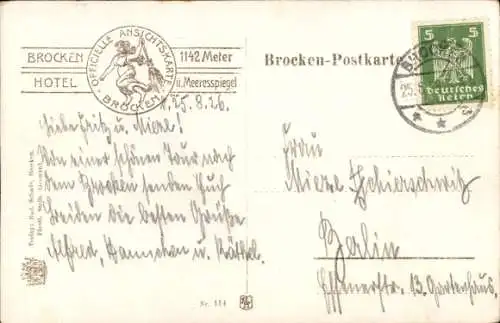 BROCKEN
HOTEL
OFFICIELLE ANSICHTSKARTE
BROCKEN
1142 Meter
ü. Meeresspiegel
Brocken-Postkarte
5 5
Deutsches
Reich
25.8.26.
Liebe Fritz u. Mieze!
Von einer schönen Tour nach
dem Brocken senden Euch
beiden die besten Grüße
Alfred, Hannchen u. Käthel.
Frau
Mieze
Berlin
13 Gartenhaus.
Verlag: Rud. Schade, Brocken.
Nr. 114